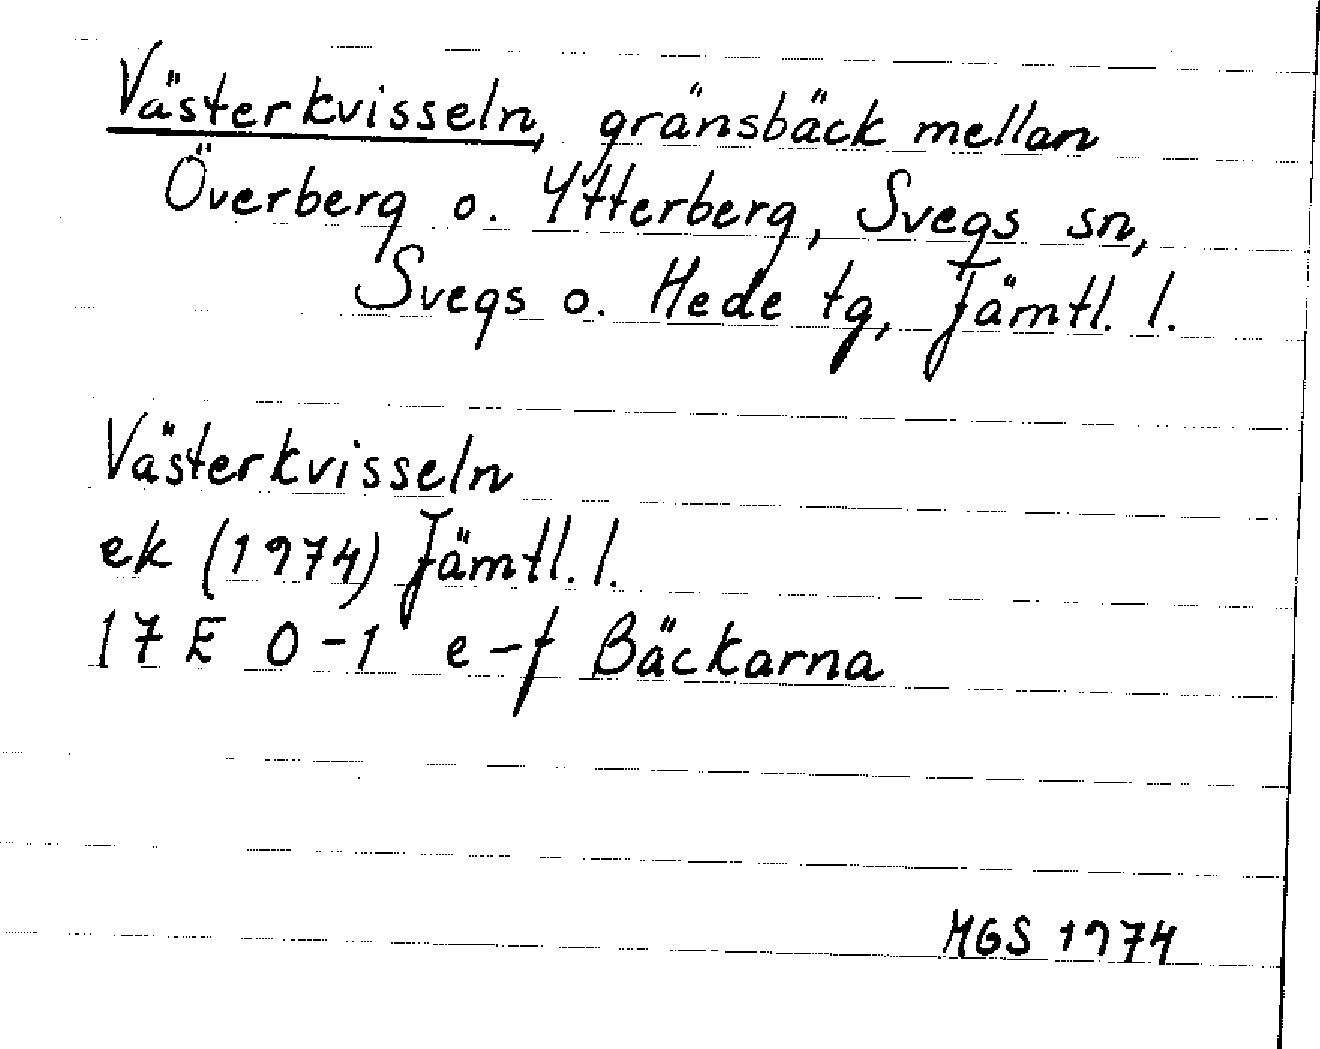 Västerkvisseln, gränsbäck mellan
Överberg o. Ytterberg, Svegs sn,
Svegs o. Hede tg, Jämtl. l.
Västerkvisseln
ek (1974) Jämtl. l.
17 E 0-1 e-f Bäckarna
MGS 1974